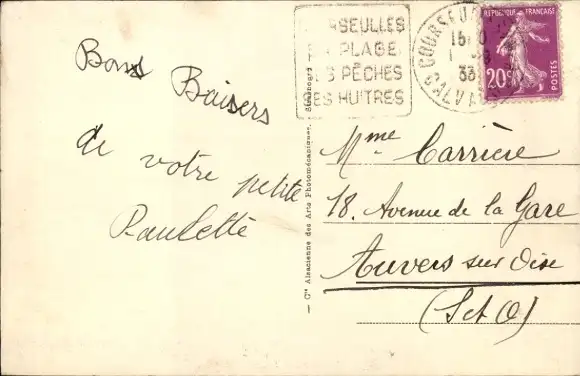 Bons Baisers
de votre petite
Paulette
COURSEULLES
SA PLAGE
SES PÊCHES
SES HUITRES
COURSEULLES
15
33
CALVADOS
RÉPUBLIQUE FRANÇAISE
20c
POSTES
Cie Alsacienne des Arts Photomécaniques, Strasbourg
Mme Carrière
18. Avenue de la Gare
Auvers sur Oise
(S et O)